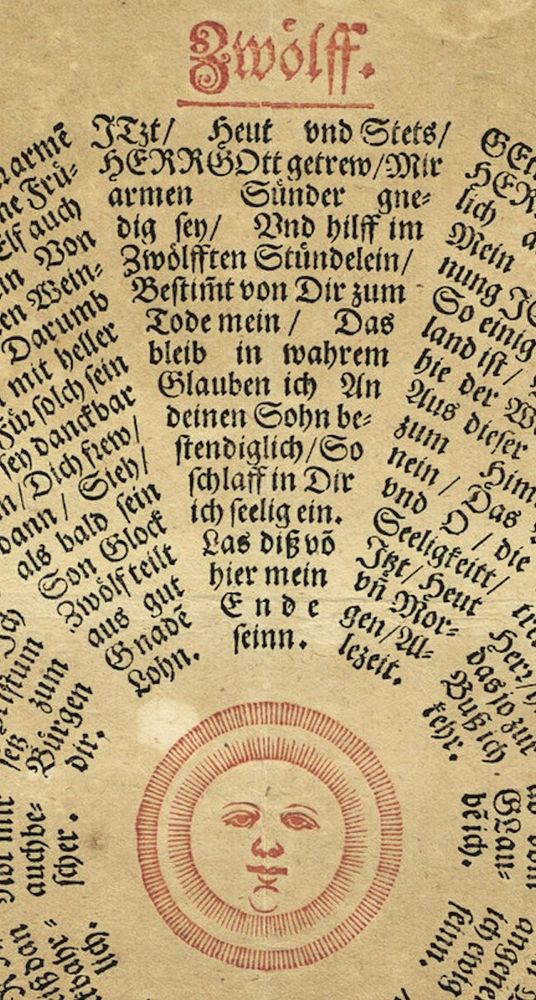 Zwölff.
JTzt/ Heut vnd Stets/
HERRGOtt getrew/Mir
armen Sünder gne⸗
dig sey/ Vnd hilff im
Zwölfften Stündelein/
Bestim̃t von Dir zum
Tode mein/ Das
bleib in wahrem
Glauben ich An
deinen Sohn be⸗
stendiglich/So
schlaff in Dir
ich seelig ein.
Las diß võ
hier mein
Ende
seinn.
armẽ
ne Frü⸗
Elf auch
Von
en Wein⸗
Darumb
mit heller
Für solch sein
sey danckbar
n/Dich frew/
dann/ Sieh/
als bald sein
Son Glock
Zwölf teilt
aus gut
Gnadẽ
Lohn.
HER
lich
Mein
nung
So einig
land ist/
hie der
Aus dieser
zum
nein/ Das
vnd O/die
Seeligkeitt/
Jtzt/Heut
vñ Mor⸗
gen/Al⸗
lezeit.
Herr/
das jo zur
Buß ich
kehr.
Glau⸗
bẽ ich.
angene
ich ewig
seinn.
Jch
setz zum
Bürgen
dir.
mir
auch be⸗
scher.